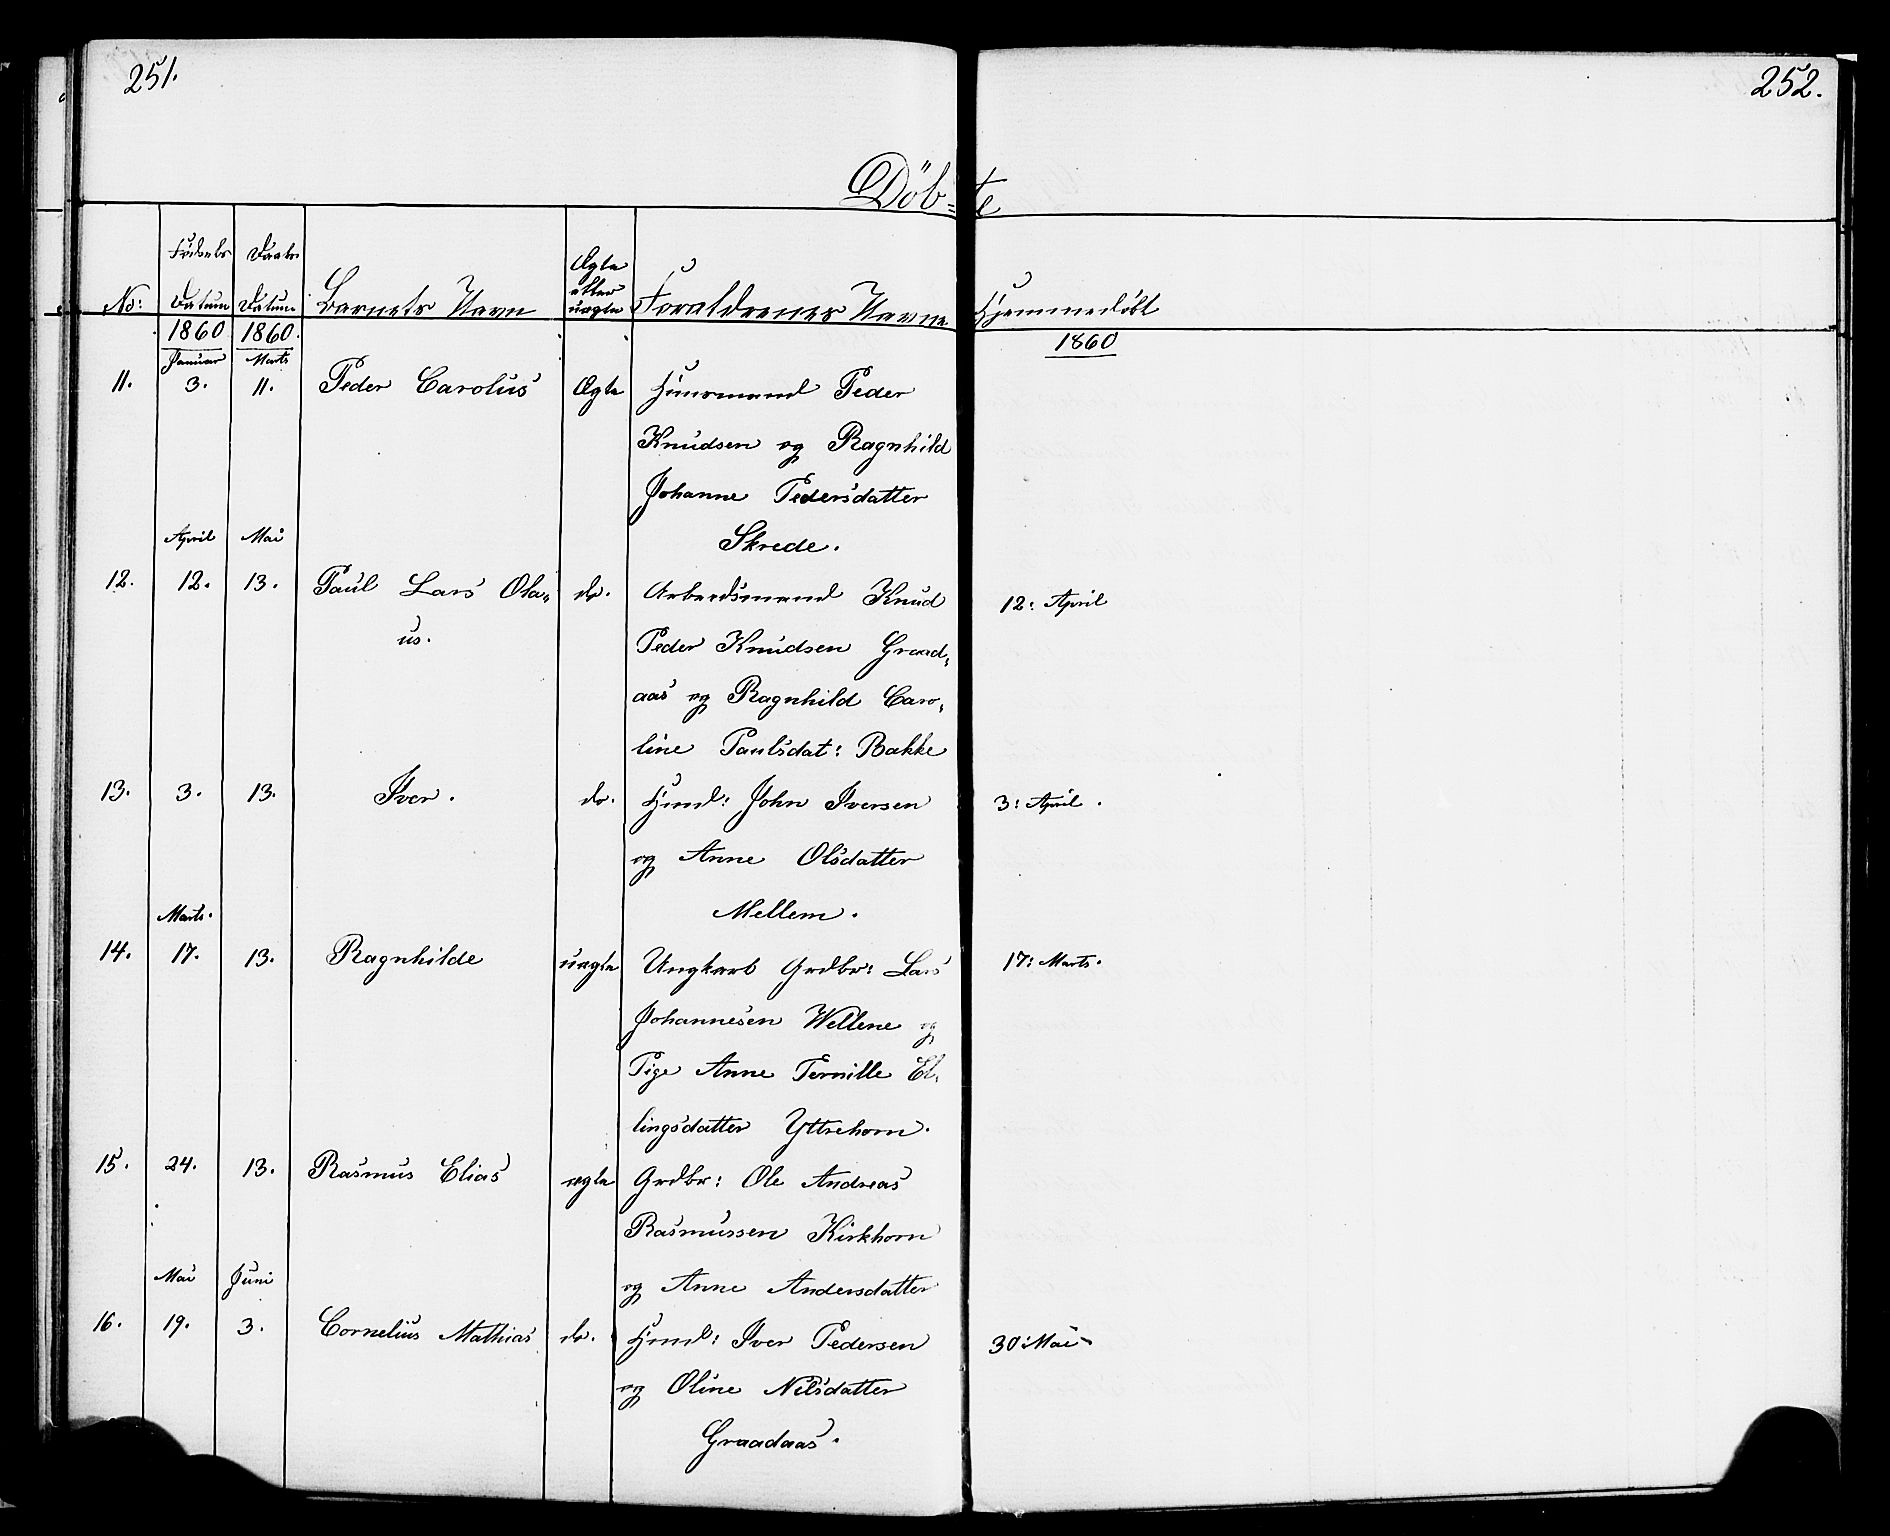 251.
252.
Döb=te
No:
Födsels
Datum
Daabs
Datum
Barnets Navn
Ægte
eller
uægte
Forældrenes Navne
Hjemmedöbt
1860 1860. 1860
Januar Marts
11. 3. 11. Peder Carolus Ægte Huusmand Peder
Knudsen og Ragnhild
Johanne Pedersdatter
April Mai Skrede.
12. 12. 13. Paul Lars Ola= do. Arbeidsmand Knud 12: April
us. Peder Knudsen Graad=
aas og Ragnhild Caro=
line Paulsdat: Bakke
13. 3. 13. Iver. do. Hmd: John Iversen 3: April.
og Anne Olsdatter
Marts. Mellem.
14. 17. 13. Ragnhilde uægte Ungkarl Grdbr: Lars 17: Marts.
Johannesen Wellene og
Pige Anne Pernille El=
lingsdatter Yttrehorn.
15. 24. 13. Rasmus Elias ægte Grdbr: Ole Andreas
Rasmussen Kirkhorn
Mai Juni og Anne Andersdatter
16. 19. 3. Cornelius Mathias do. Hmd: Iver Pedersen 30: Mai
og Oline Nilsdatter
Graadaas.